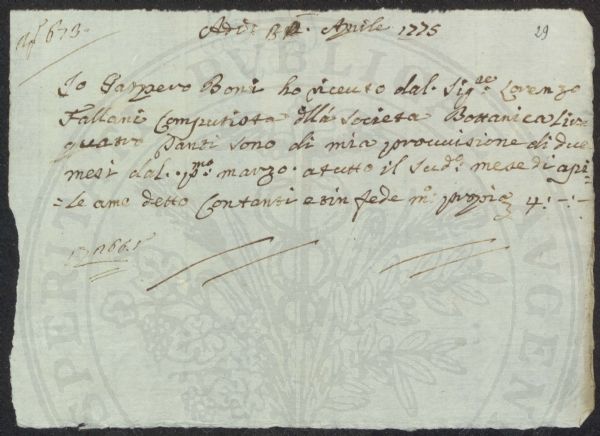 N.º 673.
Adì: Aprile 1775
29
Io Gaspero Boni ho riceuto dal. Sig.re Lorenzo
Fallani Computista della Società Bottanica Lire
quatro Tanti sono di mia provvisione di due
mesi dal. p.mo marzo. a tutto il sud.o mese di api=
=le ame detto Contanti e in fede m.o propia 4:-:-